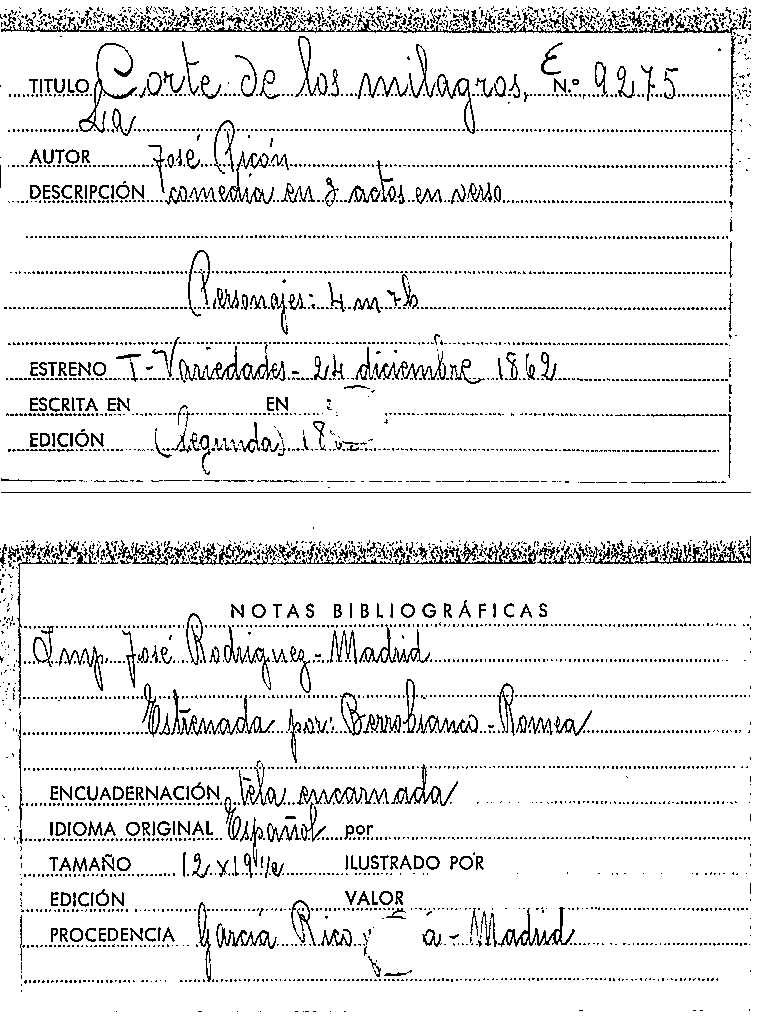 TITULO Corte de los milagros, E N.º 9275
La
AUTOR José Ricón
DESCRIPCIÓN comedia en 3 actos en verso
Personajes: 4 m 7 h
ESTRENO T-Variedades-24 diciembre 1862
ESCRITA EN EN
EDICIÓN (Segunda) 18
NOTAS BIBLIOGRÁFICAS
Imp. José Rodriguez-Madrid
Estrenada por: Berrobianco-Romea
ENCUADERNACIÓN tela encarnada
IDIOMA ORIGINAL Español por
TAMAÑO 12 x 19 1/2 ILUSTRADO POR
EDICIÓN VALOR
PROCEDENCIA García Rico y á - Madrid